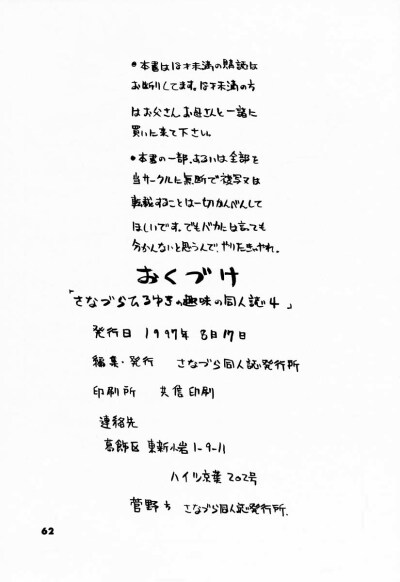 ●本書は18才未満の購読は
お断りしてます。18才未満の方
はお父さんお母さんと一緒に
買いに来て下さい。
●本書の一部、あるいは全部を
当サークルに無断で複写又は
転載することは一切かんべんして
ほしいです。でもバカには言っても
分かんないと思うんで、やりたきゃやれ。
おくづけ
「さなづらひろゆきの趣味の同人誌4」
発行日 1997年8月17日
編集・発行 さなづら同人誌発行所
印刷所 共信印刷
連絡先
葛飾区東新小岩1-9-11
ハイツ京葉202号
菅野方 さなづら同人誌発行所.
62